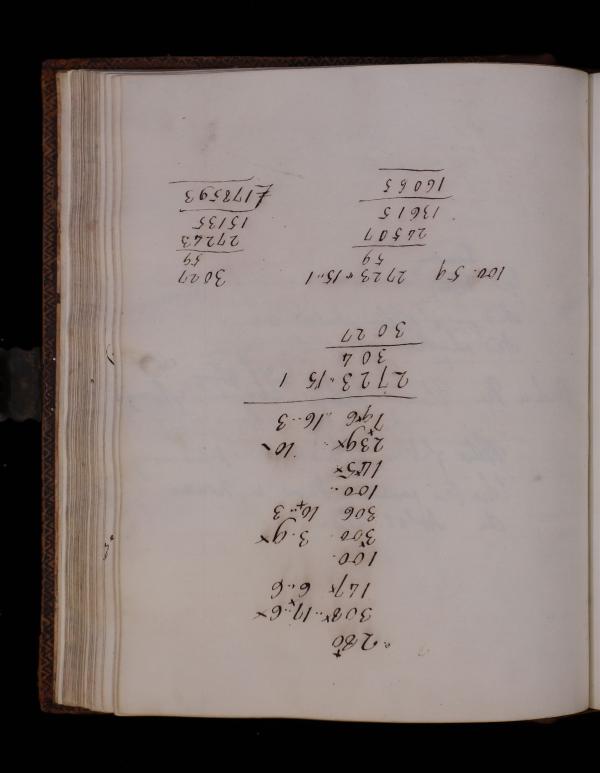 280
308 .. 17 .. 6
147 6 .. 6
100 .
300 . 3 . 9
306 16 .. 3
100 ..
145
239 .. 10
796 .. 16 .. 3
2723 .. 15 1
304
3027
100 . 59 2723 .. 15 .. 1 3027
59 59
24507 27243
13615 15135
16065 £178593